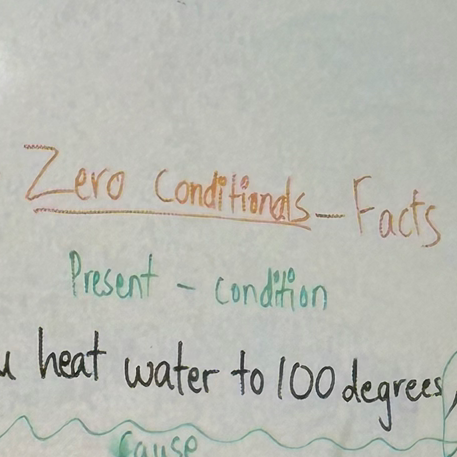 Zero Conditionals - Facts
Present - condition
u heat water to 100 degrees,
Cause